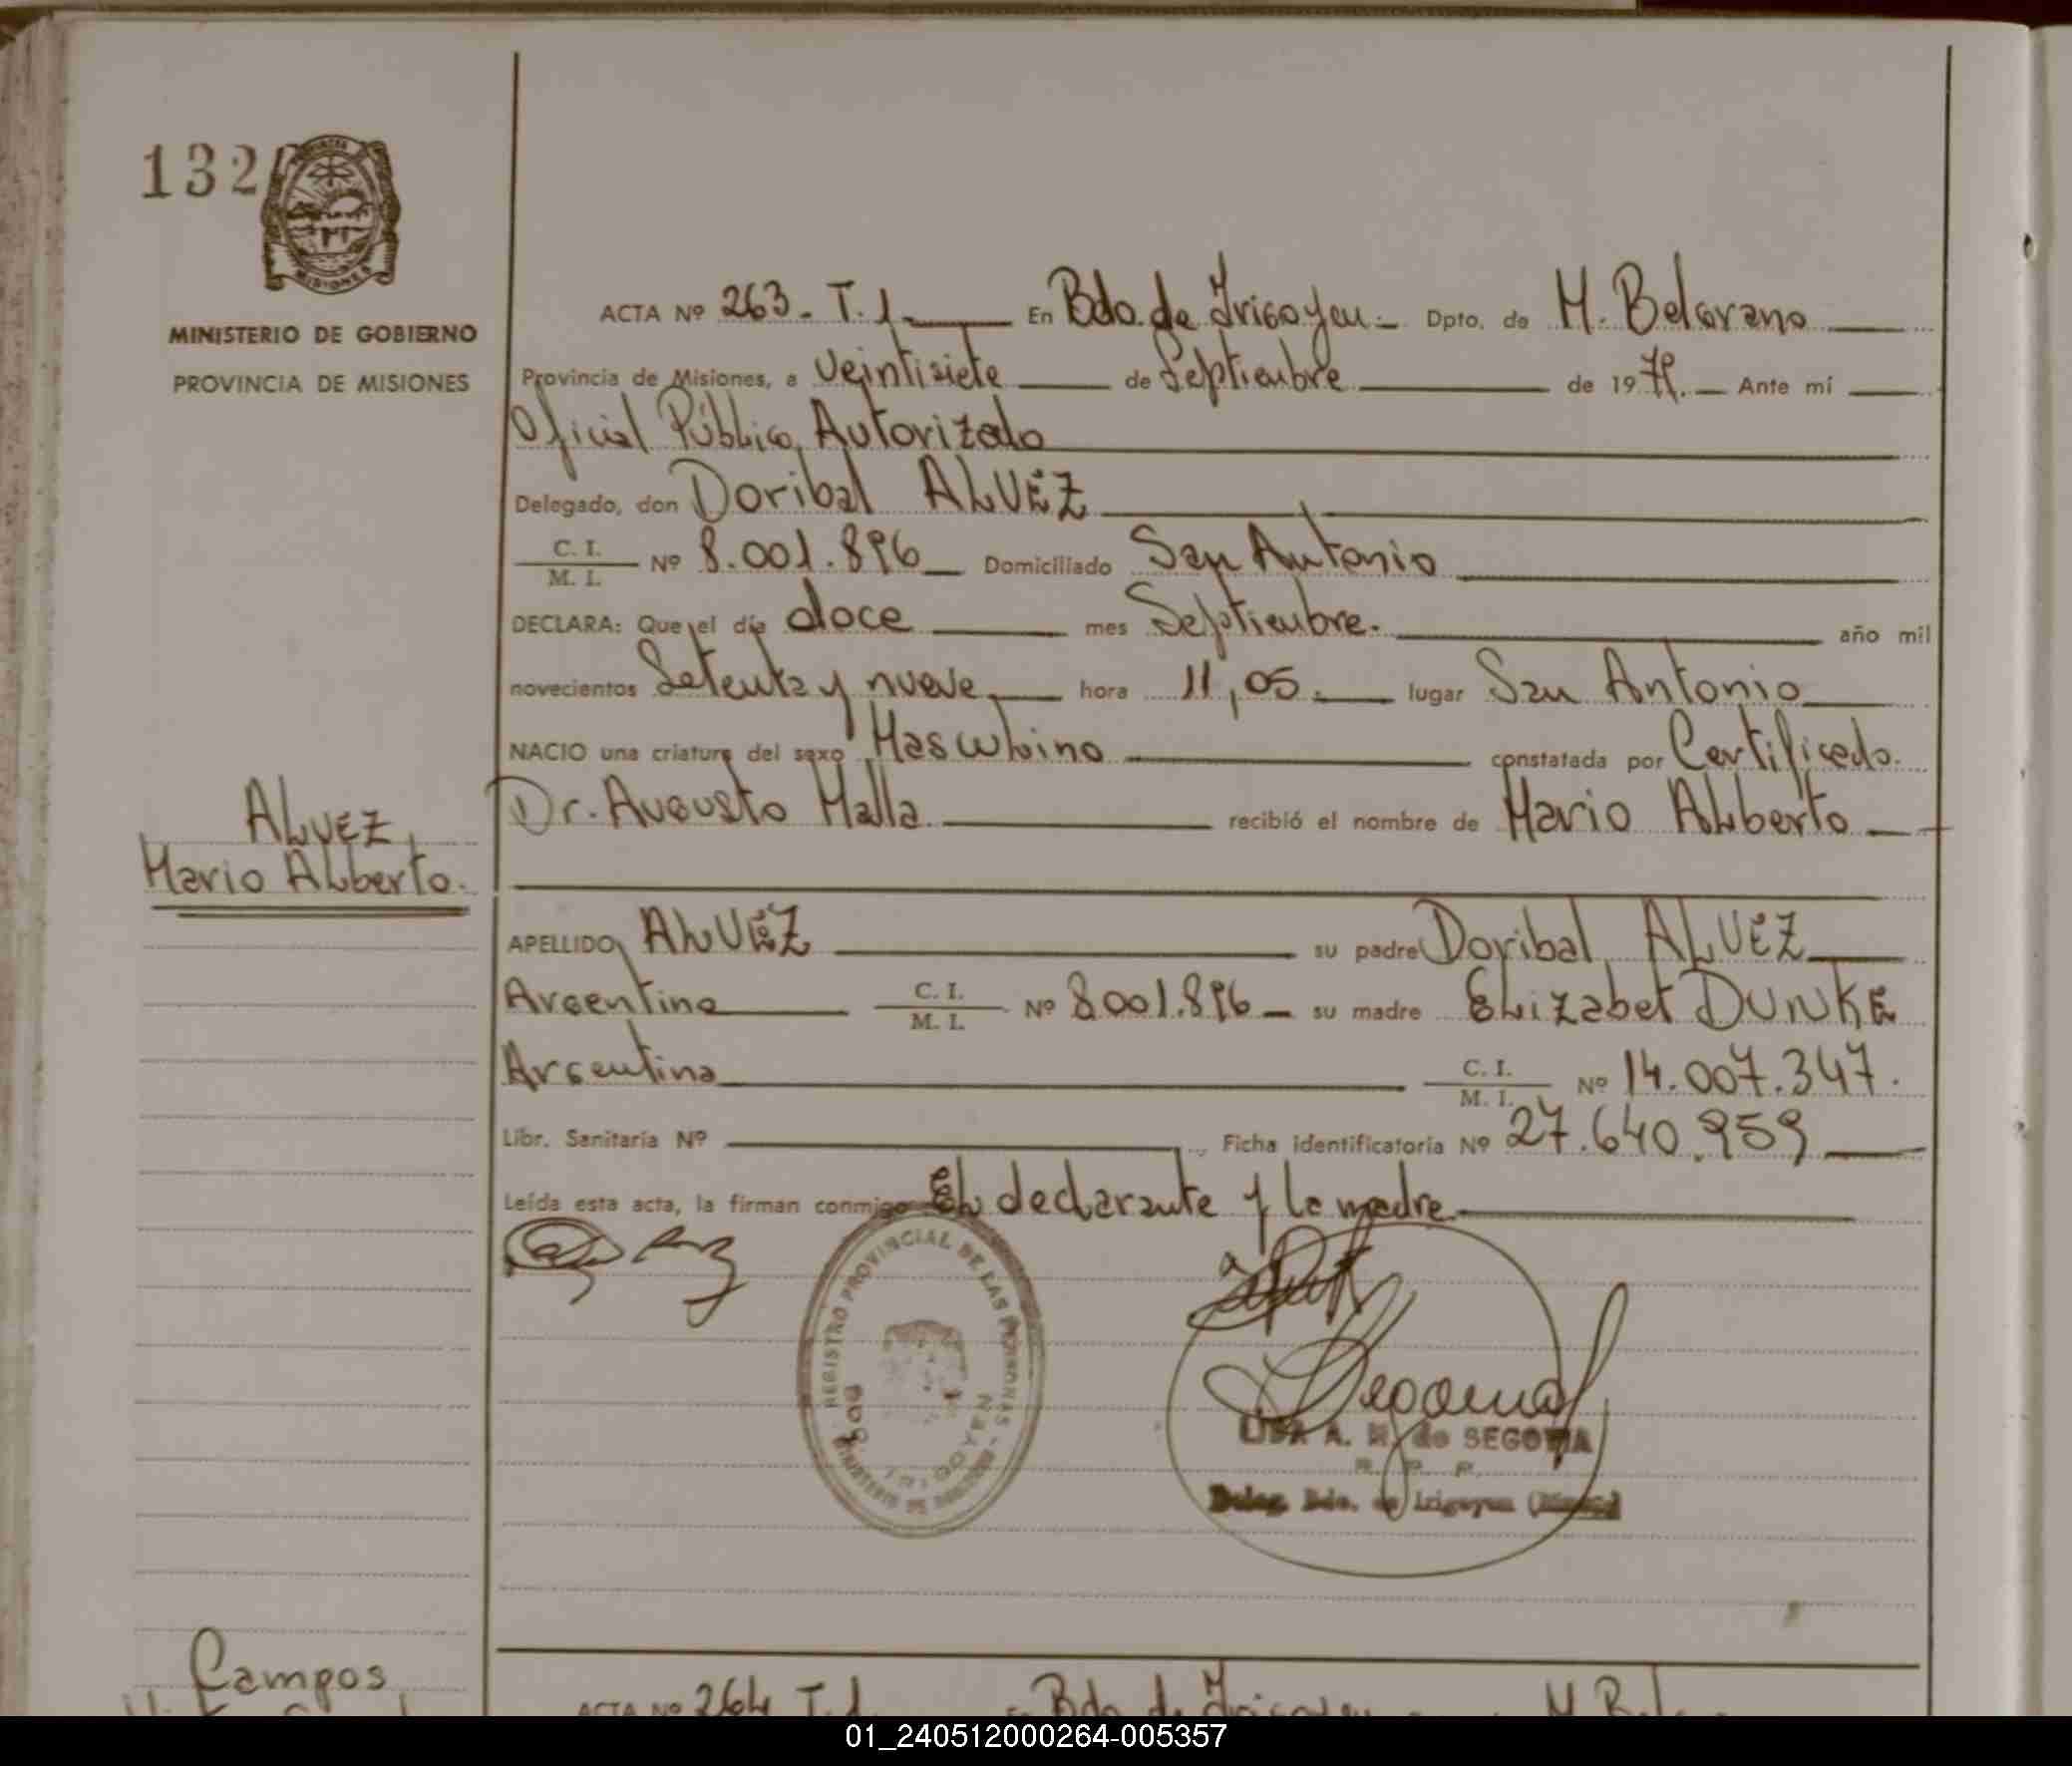 132
MISIONES
MINISTERIO DE GOBIERNO
PROVINCIA DE MISIONES
ACTA Nº 263. T. 1. En Bdo. de Irigoyen.- Dpto. de M. Belgrano
Provincia de Misiones, a veintisiete de Septiembre de 1979. Ante mí
Oficial Público Autorizado
Delegado, don Doribal ALVEZ
C. I.
M. I.
Nº 8.001.896 Domiciliado San Antonio
DECLARA: Que el día doce mes Septiembre. año mil
novecientos Setenta y nueve hora 11,05. lugar San Antonio
NACIO una criatura del sexo Masculino constatada por Certificado.
Dr. Augusto Malla recibió el nombre de Mario Alberto
ALVEZ
Mario Alberto.
APELLIDO ALVEZ su padre Doribal ALVEZ
Argentino C. I. M. I. Nº 8.001.896 su madre Elizabet DUNKE
Argentina C. I. M. I. Nº 14.007.347.
Libr. Sanitaria Nº Ficha identificatoria Nº 27.640.959
Leída esta acta, la firman conmigo El declarante y la madre
REGISTRO PROVINCIAL DE LAS PERSONAS
BDO. IRIGOYEN
LIDA A. de SEGOVIA
Deleg. Bdo. de Irigoyen
Campos
ACTA Nº 264 T. 1. Bdo. de Irigoyen
01_240512000264-005357